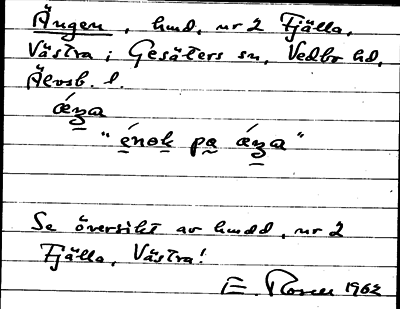 Ängen, hmd, nr 2 Fjälla,
Västra i Gesäters sn, Vedbo hd,
Älvsb. l.
ǽŋa
"énok pa ǽŋa"
Se översikt av hmdd, nr 2
Fjälla, Västra!
E. 1962